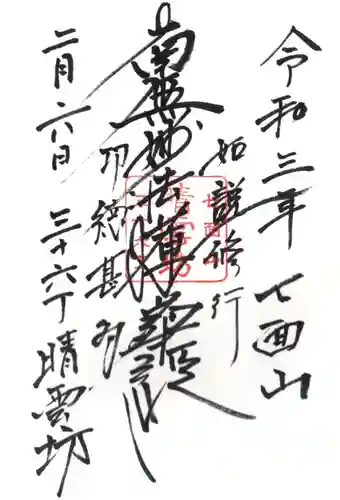 令和三年 七面山
如説修行
南無妙法蓮華経
功徳甚多
二月六日 三十六丁 晴雲坊